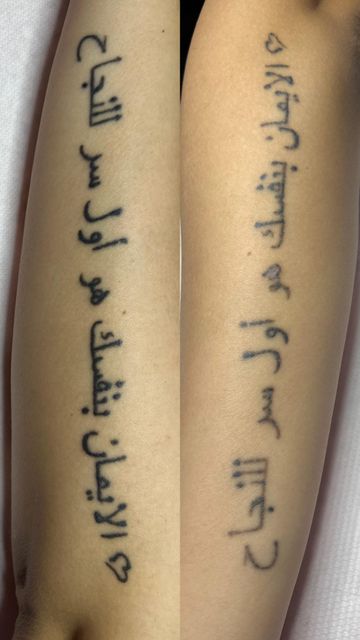 الايمان بنفسك هو أول سر للنجاح
الايمان بنفسك هو أول سر للنجاح